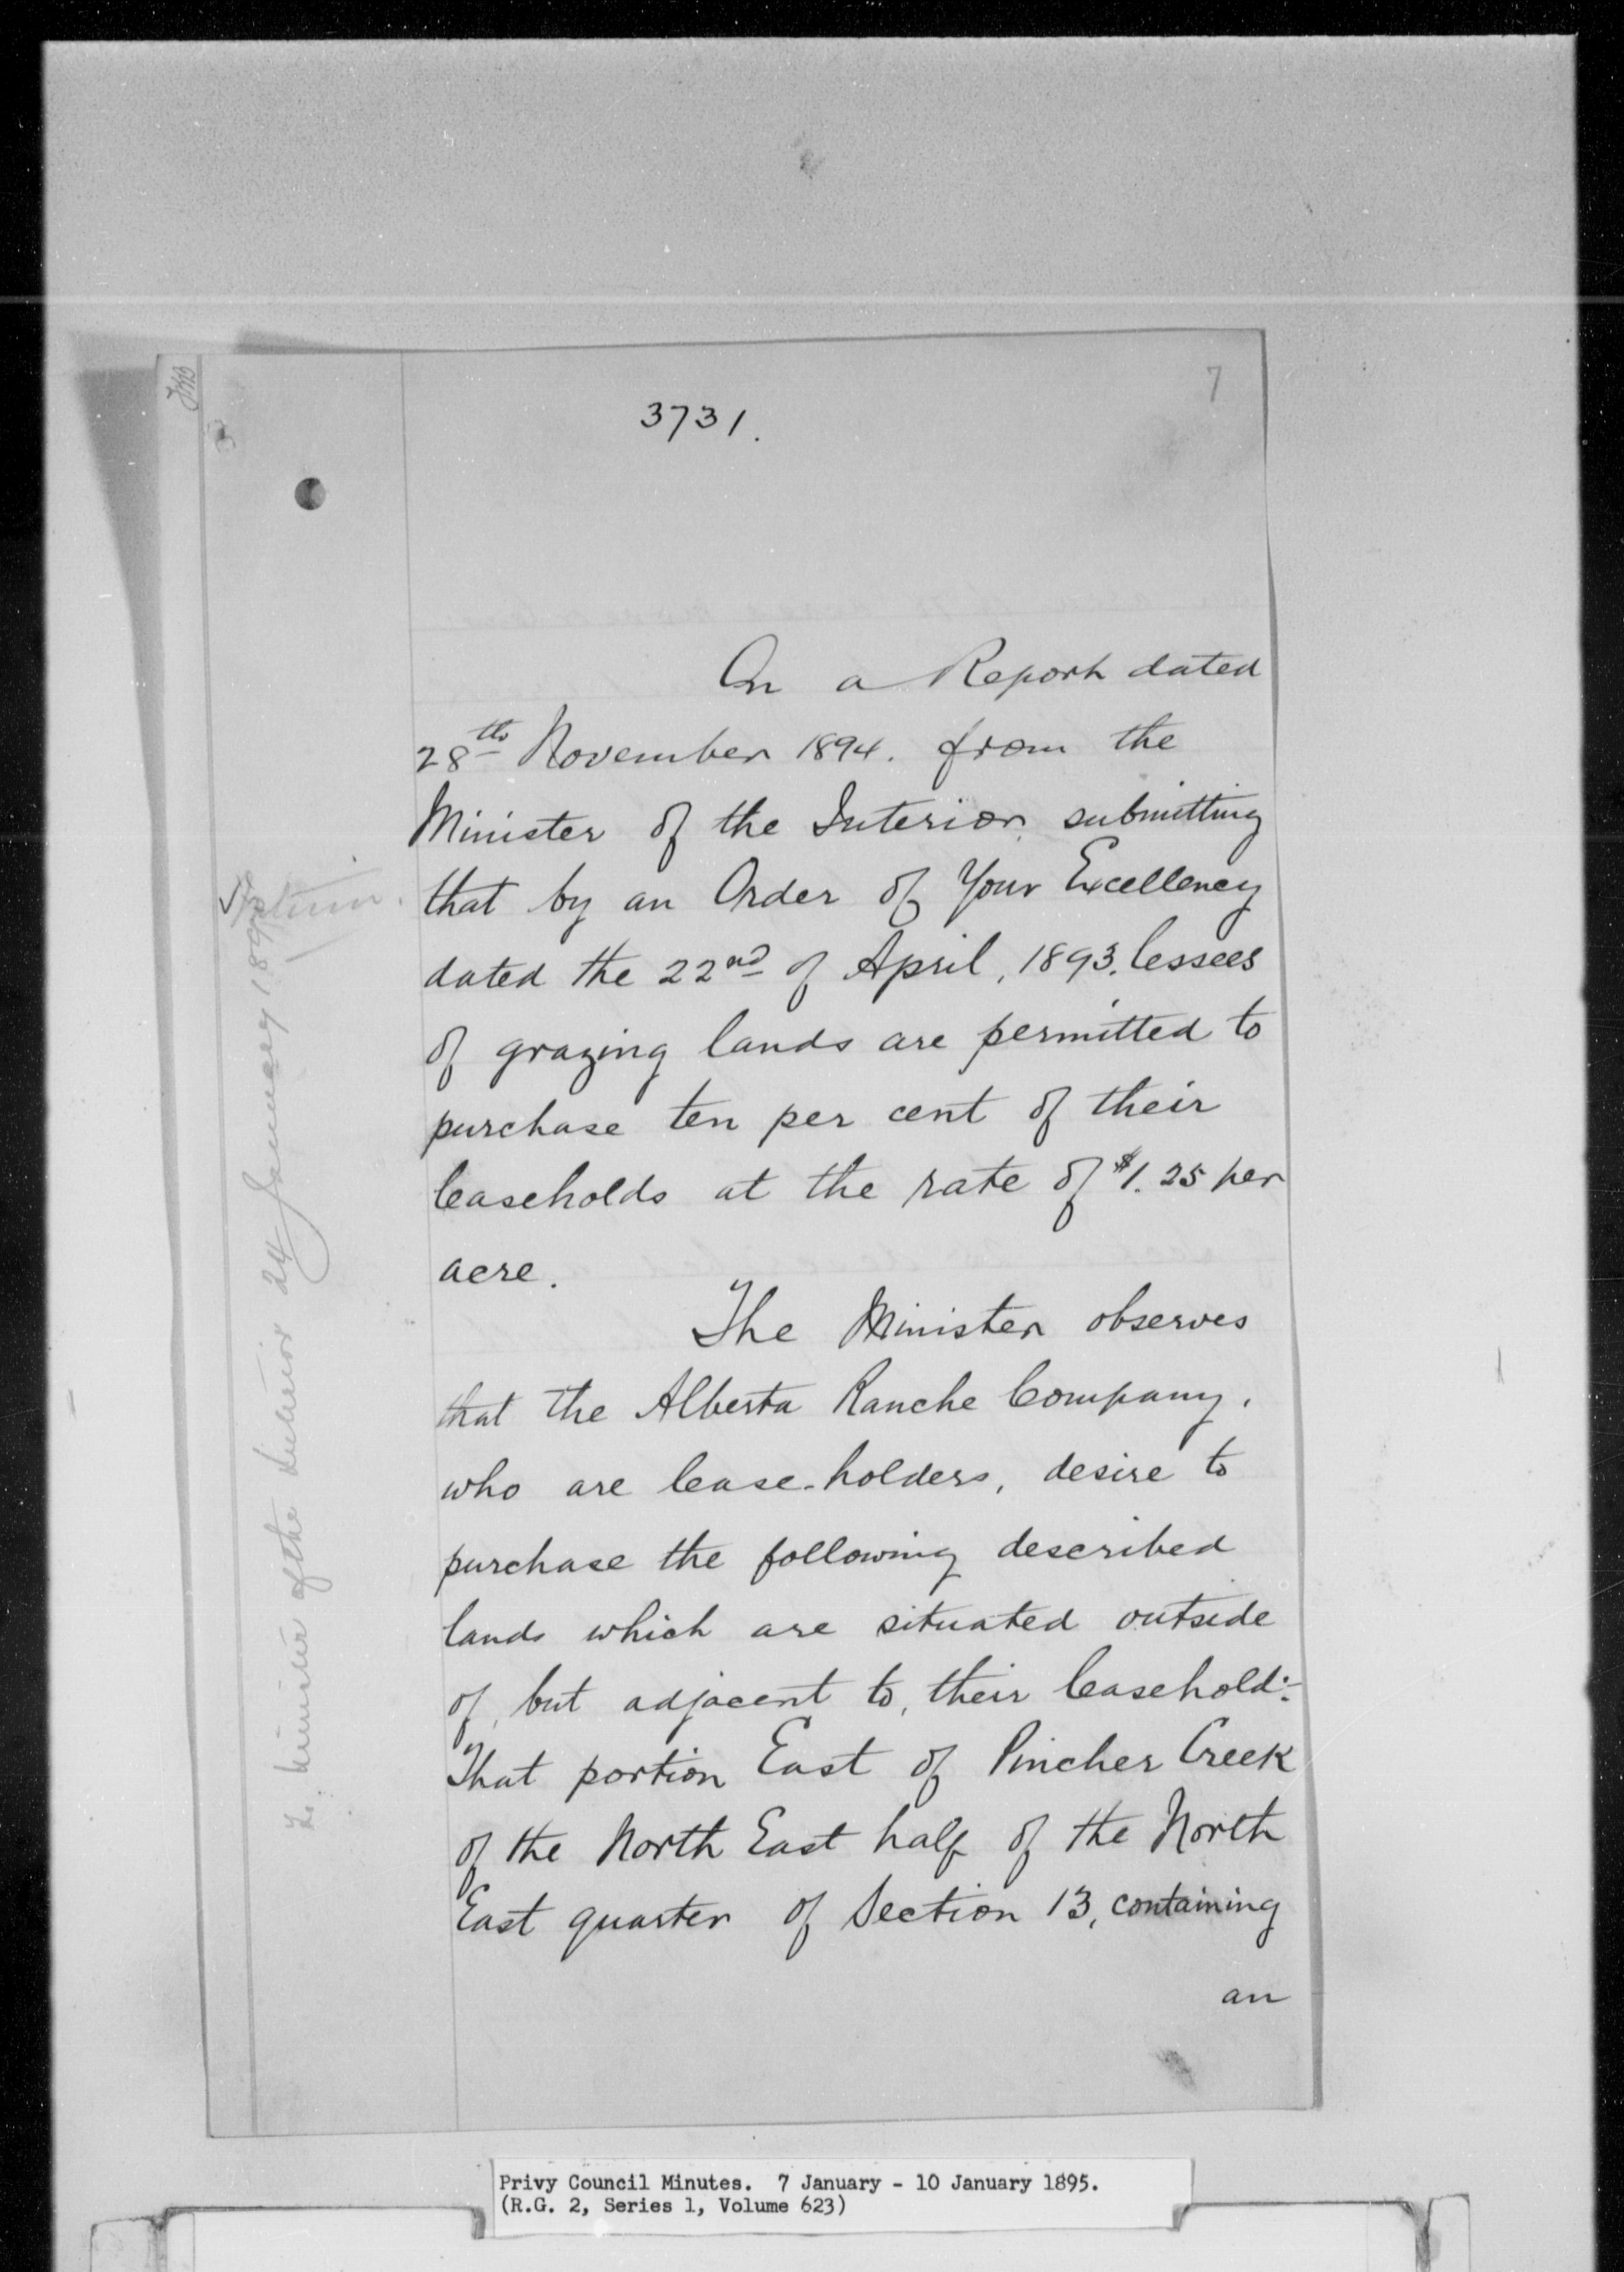 7
3731.
On a Report dated
28th November 1894. from the
Minister of the Interior, submitting
that by an Order of Your Excellency
dated the 22nd of April, 1893, lessees
of grazing lands are permitted to
purchase ten per cent of their
leaseholds at the rate of $1.25 per
acre.
The Minister observes
that the Alberta Ranche Company,
who are lease-holders, desire to
purchase the following described
lands which are situated outside
of, but adjacent to, their leasehold:-
That portion East of Pincher Creek
of the North East half of the North
East quarter of Section 13, containing
an
Interior.
Minister of the Interior 24 January 1895
Privy Council Minutes. 7 January - 10 January 1895.
(R.G. 2, Series 1, Volume 623)